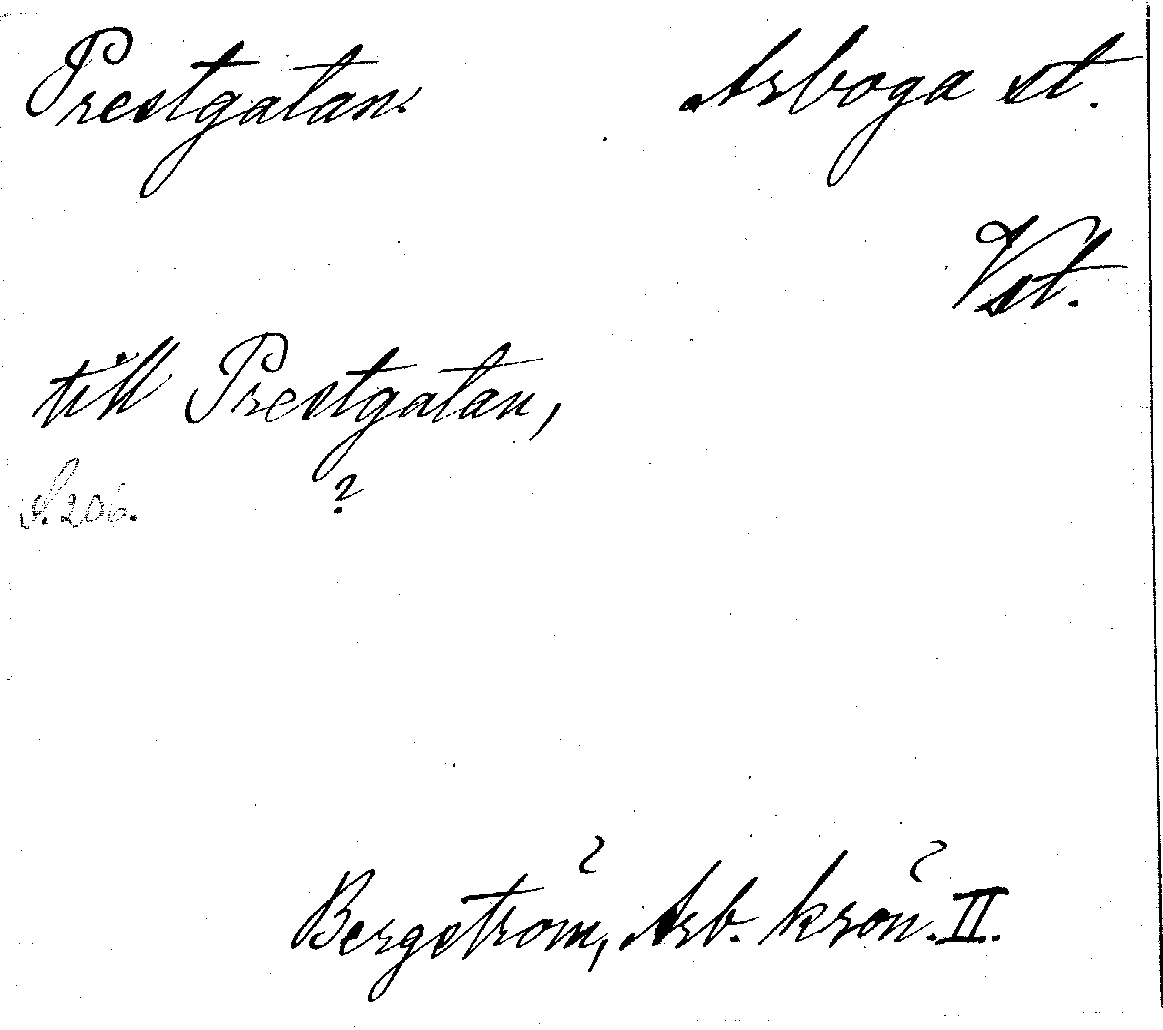 Prestgatan. Arboga st.
Vst.
till Prestgatan,
S. 206. ?
Bergström, Arb. krön. II.